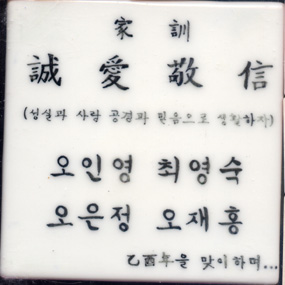 家訓
誠愛敬信
(성실과 사랑 공경과 믿음으로 생활하자)
오인영 최영숙
오은정 오재홍
乙酉年을 맞이하며...